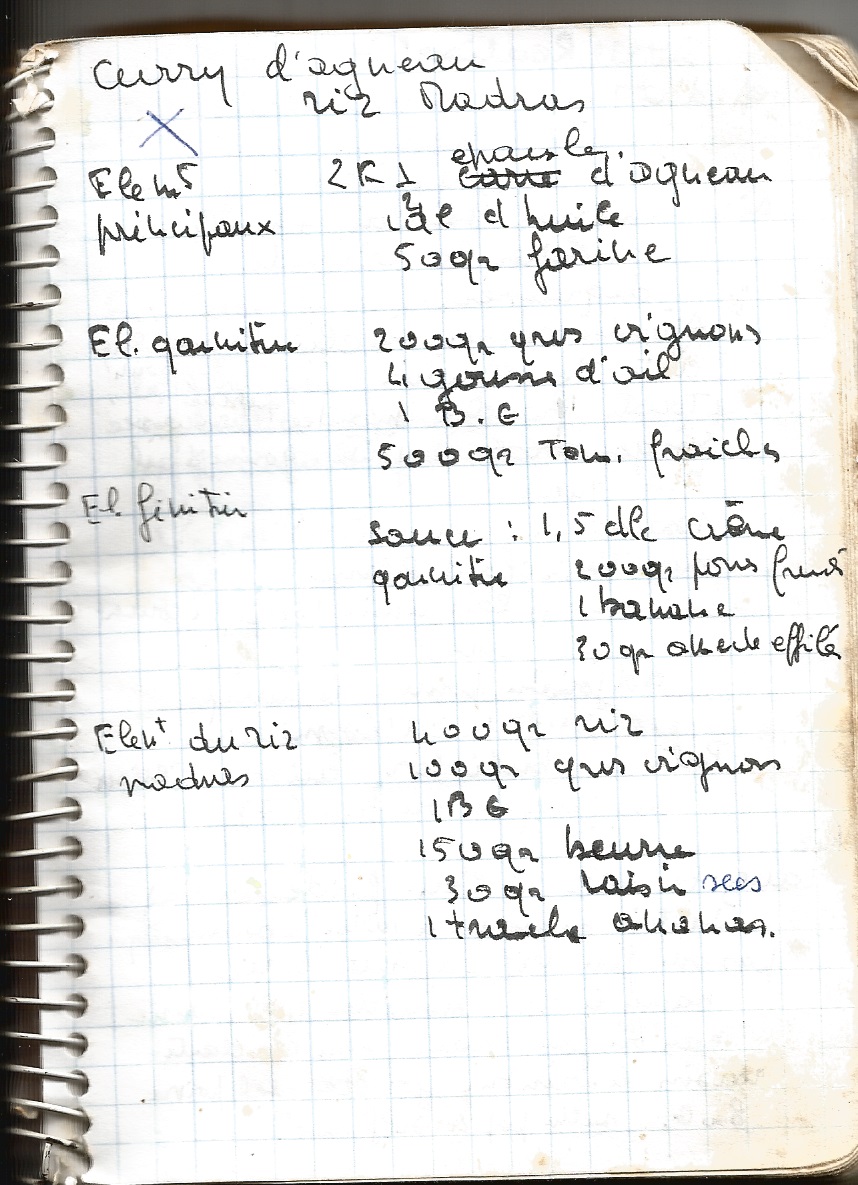 Curry d'agneau
riz Madras
Elemts 2K1 epaule d'agneau
principaux 1 dl d'huile
50gr farine
El. garniture 200gr gros oignons
4 gousses d'ail
1 B.G
500gr Tom. fraiches
El. finition
sauce : 1,5 dl crème
garniture 200gr poms fruits
1 banane
30gr amande effilés
Elemt du riz 400gr riz
madras 100gr gros oignons
1 B G
150gr beurre
30gr raisin secs
1 tranche ananas.